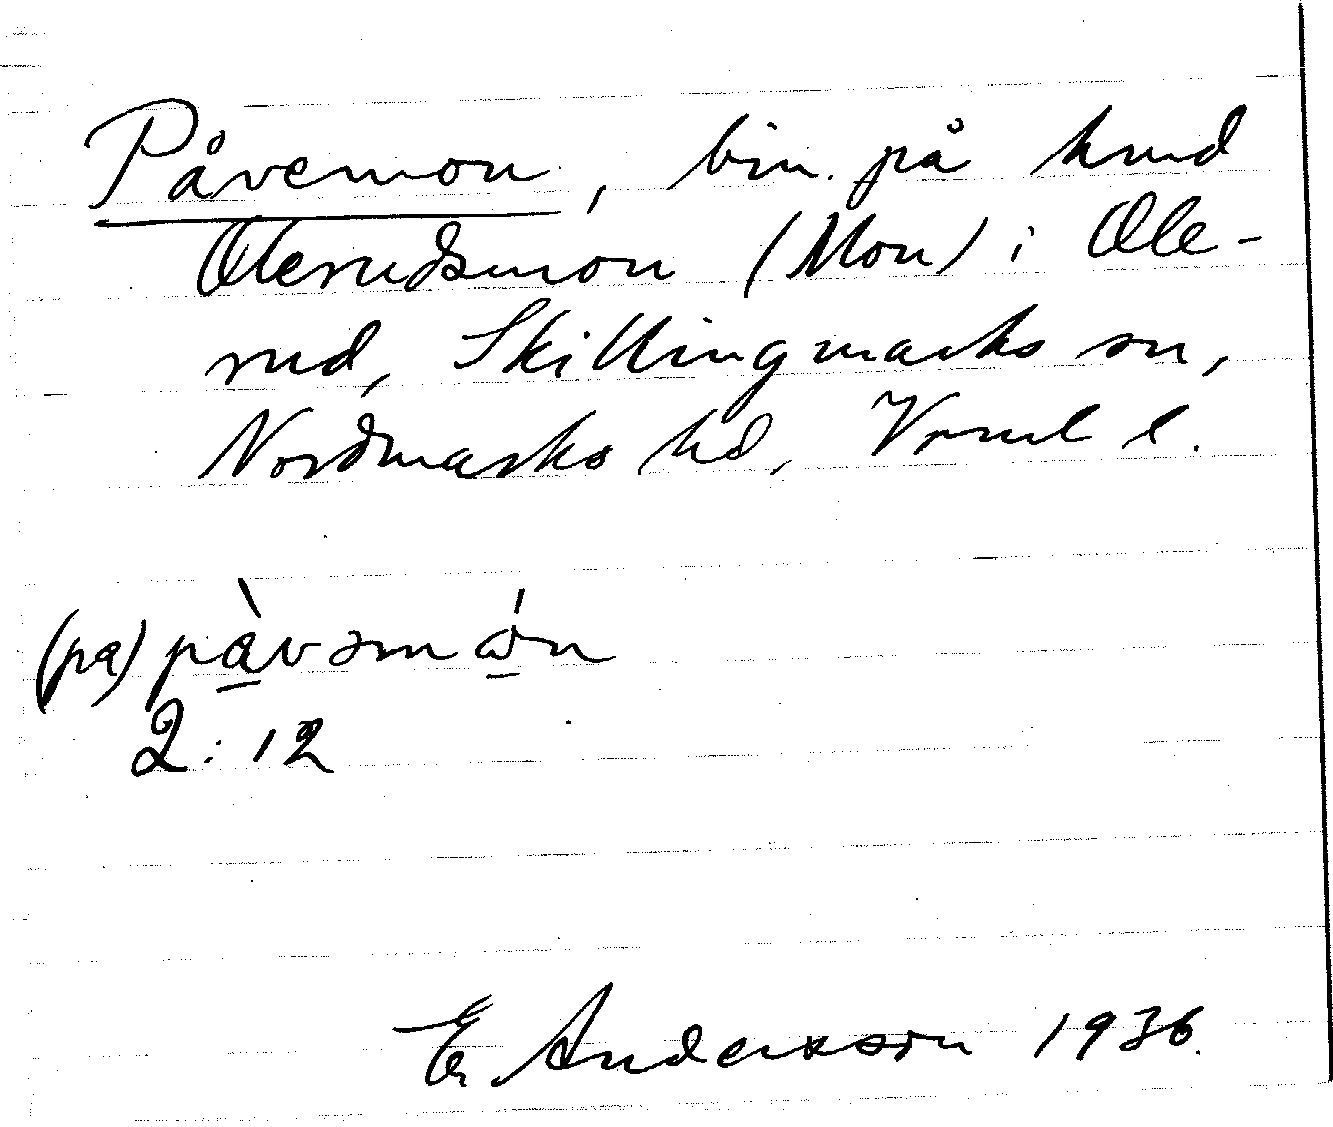 Påvemon, bin. på hmd
Olerudsmon (Mon) i Ole-
rud, Skillingmarks sn,
Nordmarks hd, Vrml l.
(pa) pàvəmớn
2:12
E. Andersson 1936.